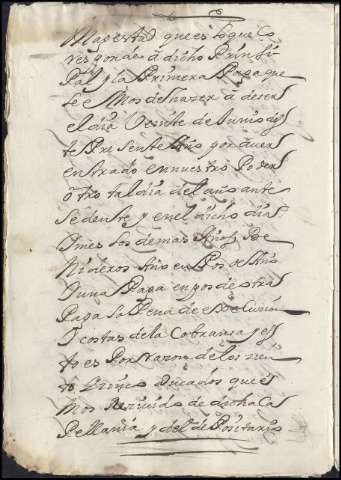 Magestad que es lo que Co
Responde a dicho Prinsi
Pal y la Primera Paga que
te emos de hazer a de ser
el dia Veinte de Junio des
te Presente Año por aver
entrado en nuestro Poder
otro tal dia del año ante
sedente y en el dicho dia
Mes los demas Años Be
nideros Año en Pos de Año
Y una Paga en pos de otra
Paga so Pena de
Y costas de la Cobransa y es
to es Por Razon de los sien
to Y sinco Ducados que e
Mos Resiuido de dicha Ca
Pellania y del de Positario